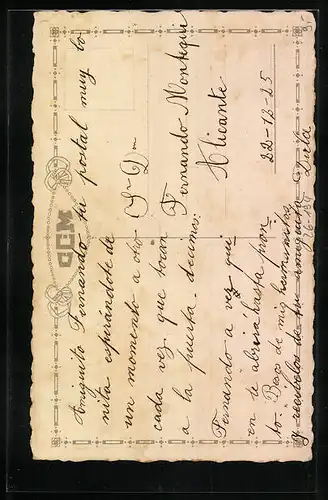 Amiguito Fernando tu postal muy bo
nita esperandote de
un momento a otro
cada vez que tocan
a la puerta. decimos:
Fernando a ver qui
en le abrirá hasta pron
to. Besos de mis hermanitas
y recuerdos de tu amiguita Lula
Sr Dn
Fernando Monteguí
Alicante
22-12-25
GGM